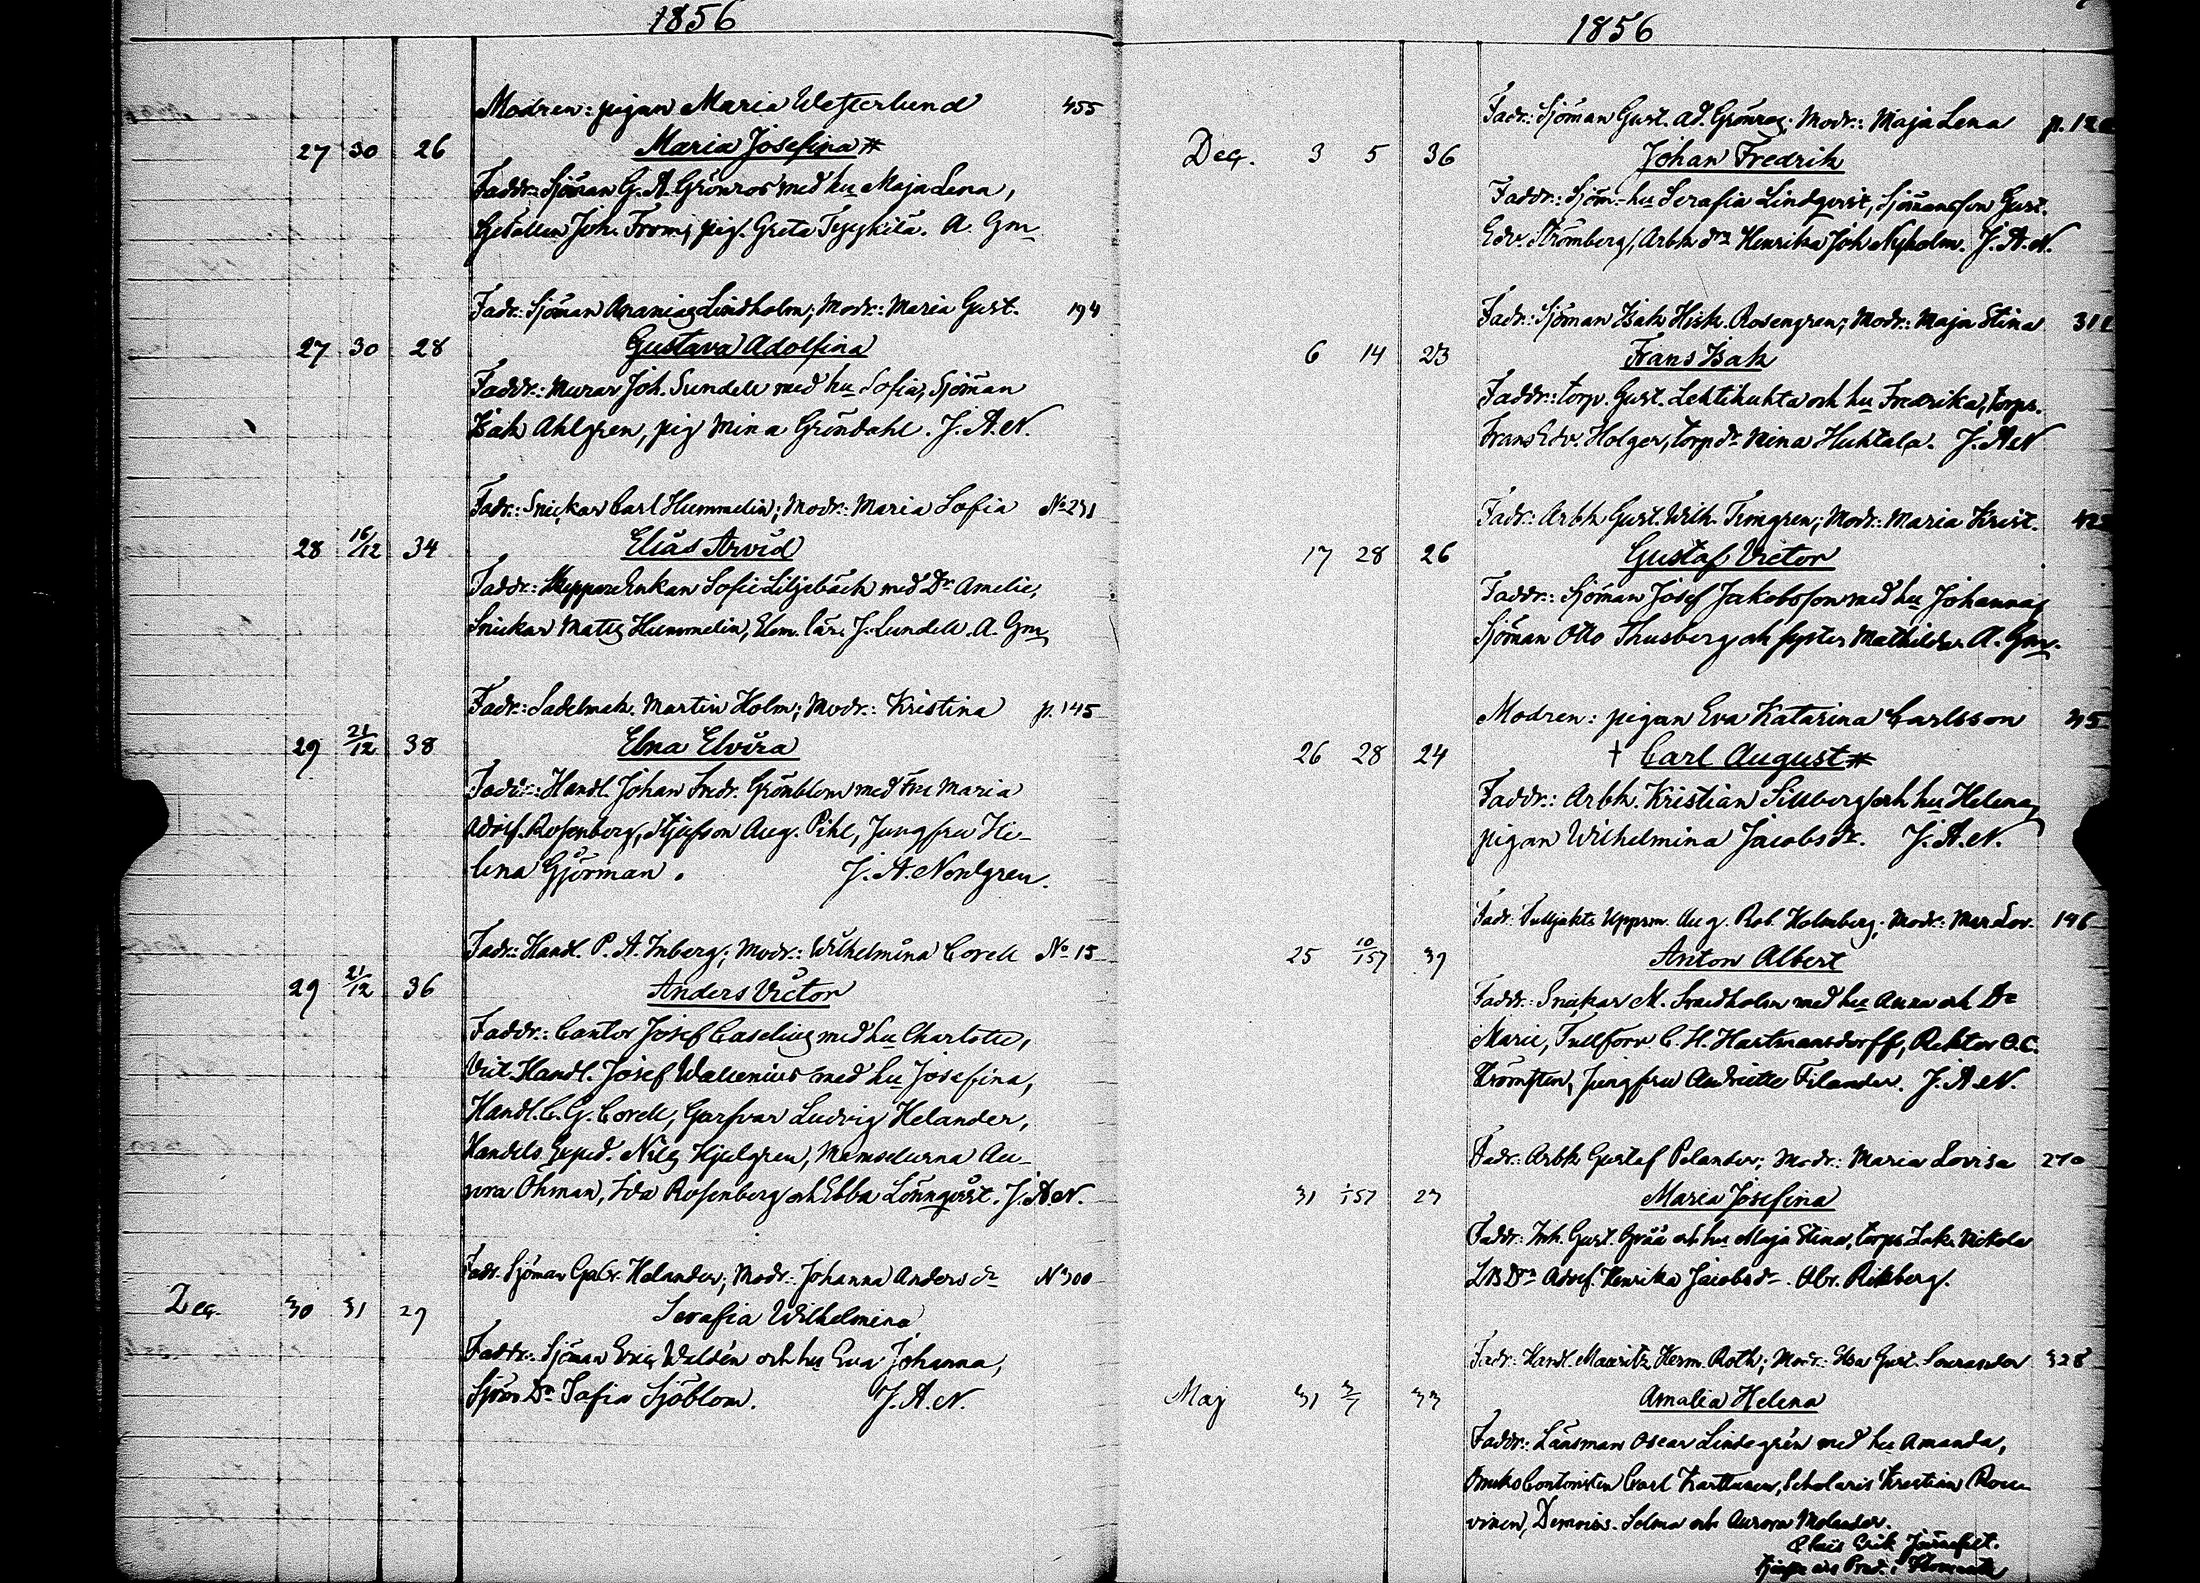 1856
Modren: pigan Maria Westerlund 455
27 30 26 Maria Josefina #
Faddr: Sjöman G. A. Grönroos med hu Maja Lena,
Gesällen Joh. From, pig. Greta A. Gm
Fadr: Sjöman Ananias Lindholm; Modr: Maria Gust. 194
27 30 28 Gustava Adolfina
Faddr: Murar Joh. Sundell med hu Sofia, Sjöman
Isak Ahlgren, pig Mina Gründahl. J. A. N.
Fadr: Snickar Carl Hummelin; Modr: Maria Sofia No 271
28 16/12 34 Elias Arvid
Faddr: Skeppare Enkan Sofie Liljebäck med Dr Amelie,
Snickar Matts Hummelin, Elem. lär. J. Lundell. A. Gm
Fadr: Sadelmak. Martin Holm; Modr: Kristina p. 145
29 21/12 38 Elna Elvira
Faddr: Handl. Johan Fredr. Grönblom med Fru Maria
Adolf. Rosenberg, Styfson Aug. Pihl, Jungfru He-
lena Gjörman. J. A. Nordgren.
Fadr: Handl. P. A. Inberg; Modr: Wilhelmina Corell No 15
29 21/12 36 Anders Victor
Faddr: Cantor Josef Caselius med hu Charlotte,
Vict. Handl. Josef Wallenius med hu Josefina,
Handl. C. G. Corell, Garfvar Ludvig Helander,
Handels Exped. Nils Hjulgren, Mamsellerna Au-
rora Öhman, Ida Rosenberg och Ebba Lönnqvist. J. A. N.
Fadr. Sjöman Gabr. Helander; Modr: Johanna Andersdr No 300
Dec. 30 31 27 Serafia Wilhelmina
Faddr: Sjöman Eric Waldén och hu Eva Johanna,
Sjöm Dr Sofia Sjöblom. J. A. N.
1856
Fadr: Sjöman Gust. Ad. Grönroos; Modr: Maja Lena p. 12
Dec. 3 5 36 Johan Fredrik
Faddr: Sjöm-hu Serafia Lindqvist, Sjömansson Gust.
Edv. Strömberg, Arbk drn Henrika Joh Nyholm. J. A. N.
Fadr: Sjöman Isak Hisk. Rosengren; Modr: Maja Stina 31
6 14 23 Frans Isak
Faddr: torp. Gust. Lehtihuhta och hu Fredrika, torps.
Frans Edv. Holger, torp dr Mina Huhtala. J. A. N
Fadr: Arbk Gust. Wilh. Modr: Maria Krist. 42
17 28 26 Gustaf Victor
Faddr: Sjöman Josef Jakobsson med hu Johanna,
Sjöman Otto Thusberg och syster Mathilda. A. Gm.
Modren: pigan Eva Katarina Carlsson 45
26 28 24 † Carl August #
Faddr: Arbk. Kristian Sillberg och hu Helena,
pigan Wilhelmina Jacobsdr. J. A. N.
Fadr: Tulljakts Uppsm. Aug. Rob. Holmberg; Modr: Mar Lov. 146
25 10/1 57 39 Anton Albert
Faddr: Snickar M. Smedholm med hu Anna och Dr
Marie, Tullförv. C. H. Hartmansdorff, Rektor O. C.
Strömsten, Jungfru Andriette Filander. J. A. N.
Fadr: Arbk Gustaf Pelander; Modr: Maria Lovisa 270
31 1/1 57 27 Maria Josefina
Faddr: Inh. Gust. Gråå och hu Maja Stina, torps Isak Nikola
Drn Adolf. Henrika Jacobsdr. Abr. Rikberg.
Fadr: Handl. Mauritz Herm. Roth; Modr: Gust. 328
Maj 31 3/7 33 Amalia Helena
Faddr: Länsman Oscar Lindegrén med hu Amanda,
Carl Karttunen, Scholaris Kristian Rou-
vinen, Demois. Selma och Aurora Molander.
Erik